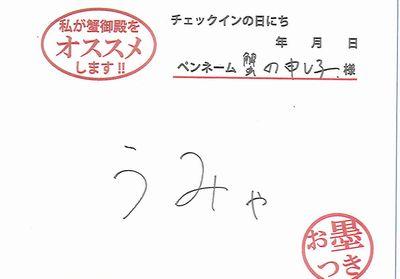 私が蟹御殿を
オススメ
します!!
チェックインの日にち
年 月 日
ペンネーム 蟹の申し子 様
うみゃ
お墨
つき